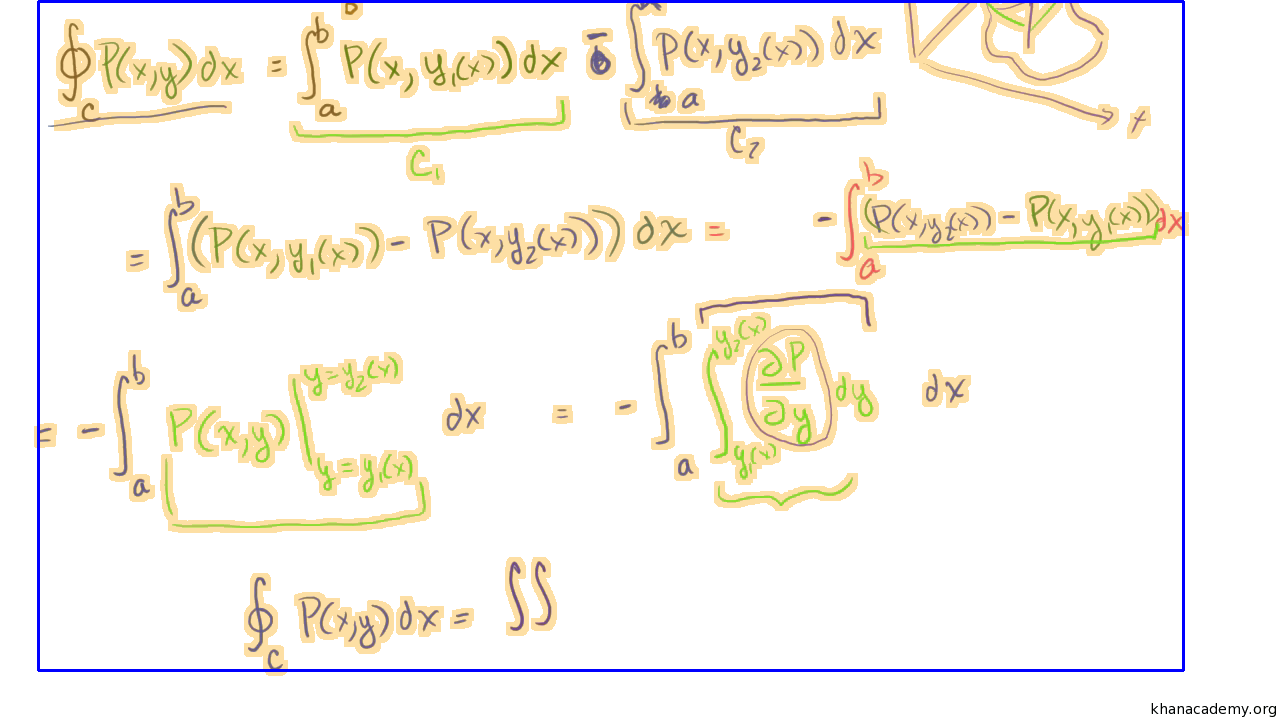 ∮_C P(x,y)dx = ∫_a^b P(x, y₁(x)) dx − ∫_a P(x,y₂(x)) dx
C₁ C₂
= ∫_a^b (P(x, y₁(x)) − P(x,y₂(x))) dx = −∫_a^b (P(x,y₂(x)) − P(x,y₁(x)))dx
= −∫_a^b P(x,y) |_{y=y₁(x)}^{y=y₂(x)} dx = −∫_a^b ∫_{y₁(x)}^{y₂(x)} ∂P/∂y dy dx
∮_C P(x,y)dx = ∬
khanacademy.org